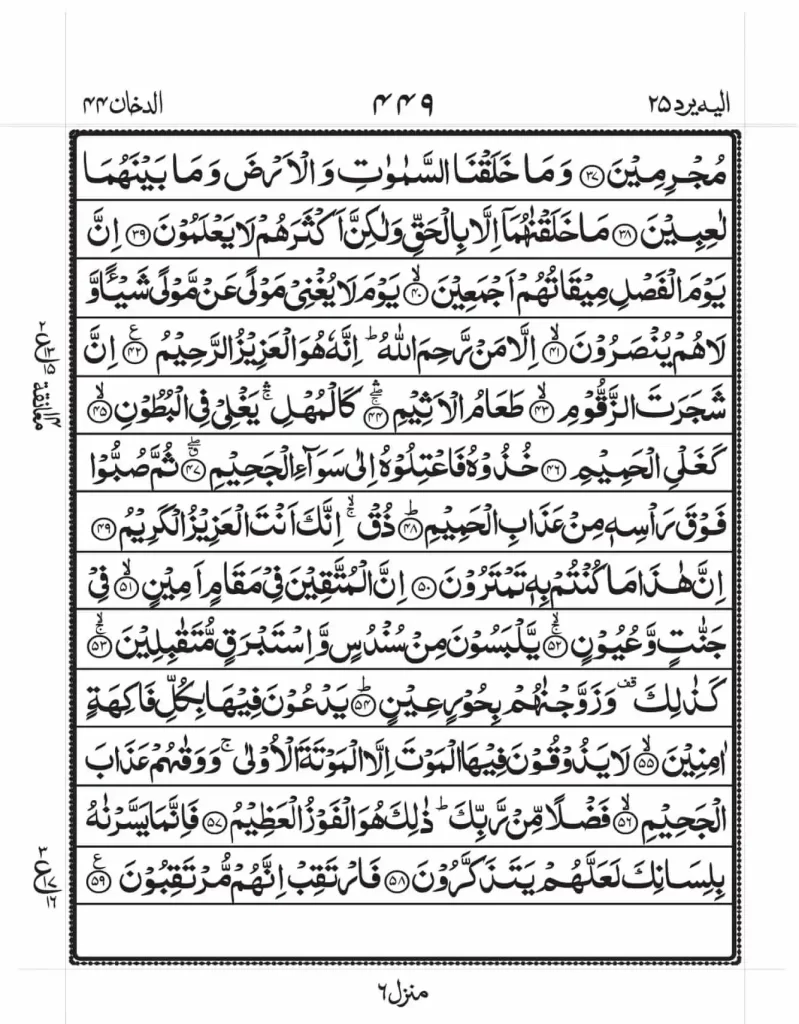 الدخان ۴۴ ۴۴۹ الیه یرد ۲۵
مُجْرِمِيْنَ ۝۳۷ وَمَا خَلَقْنَا السَّمٰوٰتِ وَالْاَرْضَ وَمَا بَيْنَهُمَا
لٰعِبِيْنَ ۝۳۸ مَا خَلَقْنٰهُمَاۤ اِلَّا بِالْحَقِّ وَلٰكِنَّ اَكْثَرَهُمْ لَا يَعْلَمُوْنَ ۝۳۹ اِنَّ
يَوْمَ الْفَصْلِ مِيْقَاتُهُمْ اَجْمَعِيْنَ ۝۴۰ۙ يَوْمَ لَا يُغْنِيْ مَوْلًى عَنْ مَّوْلًى شَيْـًٔا وَّ
لَا هُمْ يُنْصَرُوْنَ ۝۴۱ۙ اِلَّا مَنْ رَّحِمَ اللّٰهُ ؕ اِنَّهٗ هُوَ الْعَزِيْزُ الرَّحِيْمُ ۝۴۲ع اِنَّ
شَجَرَتَ الزَّقُّوْمِ ۝۴۳ۙ طَعَامُ الْاَثِيْمِ ۝۴۴ۛۖۚ كَالْمُهْلِ ۛۚ يَغْلِيْ فِي الْبُطُوْنِ ۝۴۵ۙ
كَغَلْيِ الْحَمِيْمِ ۝۴۶ خُذُوْهُ فَاعْتِلُوْهُ اِلٰى سَوَآءِ الْجَحِيْمِ ۝۴۷ۗۖ ثُمَّ صُبُّوْا
فَوْقَ رَاْسِهٖ مِنْ عَذَابِ الْحَمِيْمِ ۝۴۸ؕ ذُقْ ۚۙ اِنَّكَ اَنْتَ الْعَزِيْزُ الْكَرِيْمُ ۝۴۹
اِنَّ هٰذَا مَا كُنْتُمْ بِهٖ تَمْتَرُوْنَ ۝۵۰ اِنَّ الْمُتَّقِيْنَ فِيْ مَقَامٍ اَمِيْنٍ ۝۵۱ۙ فِيْ
جَنّٰتٍ وَّعُيُوْنٍ ۝۵۲ۚۙ يَّلْبَسُوْنَ مِنْ سُنْدُسٍ وَّاِسْتَبْرَقٍ مُّتَقٰبِلِيْنَ ۝۵۳ۚۙ
كَذٰلِكَ قف وَزَوَّجْنٰهُمْ بِحُوْرٍ عِيْنٍ ۝۵۴ؕ يَدْعُوْنَ فِيْهَا بِكُلِّ فَاكِهَةٍ
اٰمِنِيْنَ ۝۵۵ۙ لَا يَذُوْقُوْنَ فِيْهَا الْمَوْتَ اِلَّا الْمَوْتَةَ الْاُوْلٰى ۚ وَوَقٰىهُمْ عَذَابَ
الْجَحِيْمِ ۝۵۶ۙ فَضْلًا مِّنْ رَّبِّكَ ؕ ذٰلِكَ هُوَ الْفَوْزُ الْعَظِيْمُ ۝۵۷ فَاِنَّمَا يَسَّرْنٰهُ
بِلِسَانِكَ لَعَلَّهُمْ يَتَذَكَّرُوْنَ ۝۵۸ فَارْتَقِبْ اِنَّهُمْ مُّرْتَقِبُوْنَ ۝۵۹ع
۲ ع ۱۳ ۱۵
معانقة ۱۳
۳ ع ۱۷ ۱۶
منزل ۶